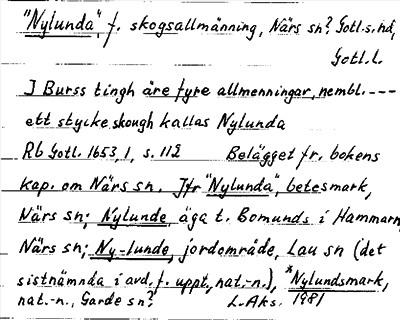 "Nylunda", f. skogsallmänning, Närs sn? Gotl.s.hd,
Gotl.l.
J Burss tingh äre fyre allmenningar, nembl. ---
ett stycke skough kallas Nylunda
Rb Gotl. 1653, 1, s. 112 Belägget fr. bokens
kap. om Närs sn. Jfr "Nylunda", betesmark,
Närs sn; Nylunde, äga t. Bomunds i Hammarn
Närs sn; Ny-lunde, jordområde, Lau sn (det
sistnämnda i avd. f. uppt, nat.-n.), *Nylundsmark,
nat.-n., Garde sn? L. Aks. 1981